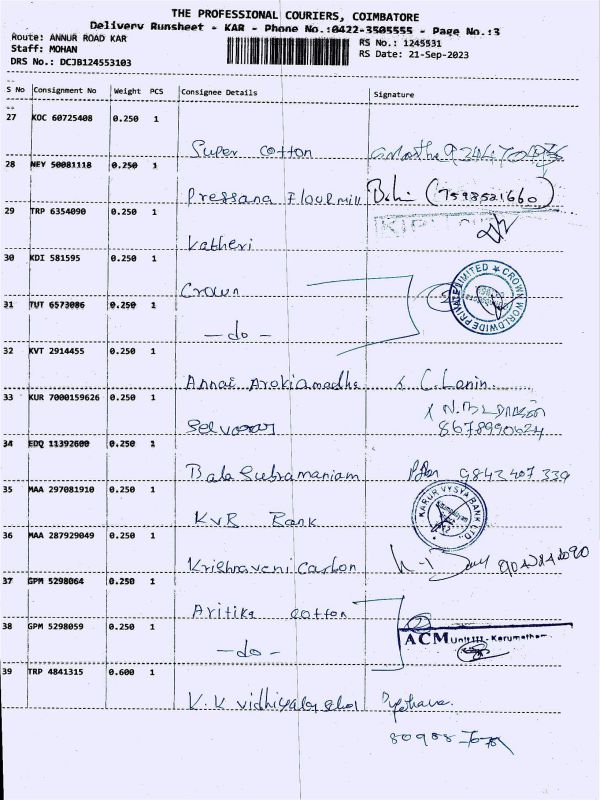 THE PROFESSIONAL COURIERS, COIMBATORE
Delivery Runsheet - KAR - Phone No.:0422-3505555 - Page No.:3
Route: ANNUR ROAD KAR
RS No.: 1245531
Staff: MOHAN
RS Date: 21-Sep-2023
DRS No.: DCJB124553103
S No Consignment No Weight PCS Consignee Details Signature
27 KOC 60725408 0.250 1
Super cotton
28 NEY 50081118 0.250 1
Pressana Flourmill (7598521660)
29 TRP 6354090 0.250 1
Katheri
30 KDI 581595 0.250 1
Crown
CROWN WORLDWIDE PRIVATE LIMITED
31 TUT 6573086 0.250 1
- do -
32 KVT 2914455 0.250 1
Annai Arokiamadha C. Lenin
33 KUR 7000159626 0.250 1
8678990624
34 EDQ 11392600 0.250 1
Bala Subramaniam 9843407339
35 MAA 297081910 0.250 1
KVB Bank
KARUR VYSYA BANK LTD.
36 MAA 287929049 0.250 1
Krishnaveni Carbon
37 GPM 5298064 0.250 1
Aritika cotton
38 GPM 5298059 0.250 1
ACM Unit III - Karumatham
- do -
39 TRP 4841315 0.600 1
K.K